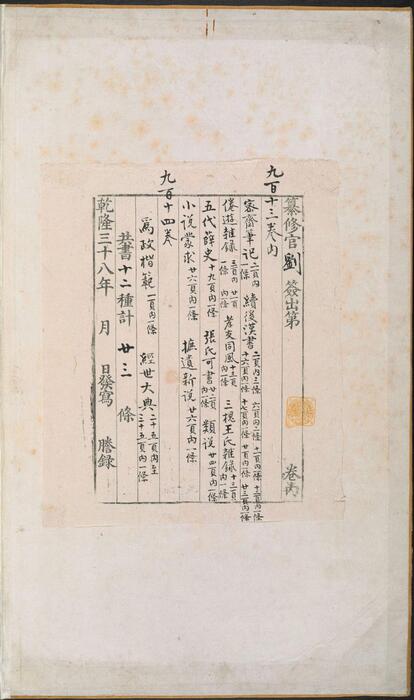 九百十三卷内
纂修官劉 簽出第 卷內
容齋筆記二頁內一條 續後漢書二頁內三條 六頁內二條 十二頁內一條 十三頁內一條 十六頁內一條 十七頁內一條 廿頁內一條 廿三頁內一條
倦遊雜錄三頁內一條 廿一頁內一條 孝友同風十三頁內一條 三槐王氏雜錄十三頁內一條
五代薛史十九頁內一條 張氏可書廿二頁內一條 類說廿四頁內一條
小說蒙求廿六頁內一條 摭遺新說廿六頁內一條
九百十四卷
爲政楷範一頁內一條 經世大典二十五頁內至三十五頁內一條
共書十二種計廿三條
乾隆三十八年 月 日發寫 謄錄